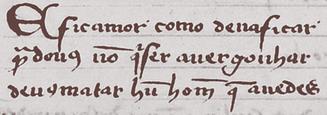 E ficamor como deuaficar
p̃ douꝯ nō q̃ser auergonhar
deuꝯmatar hũ hom̄ q̄ auedes